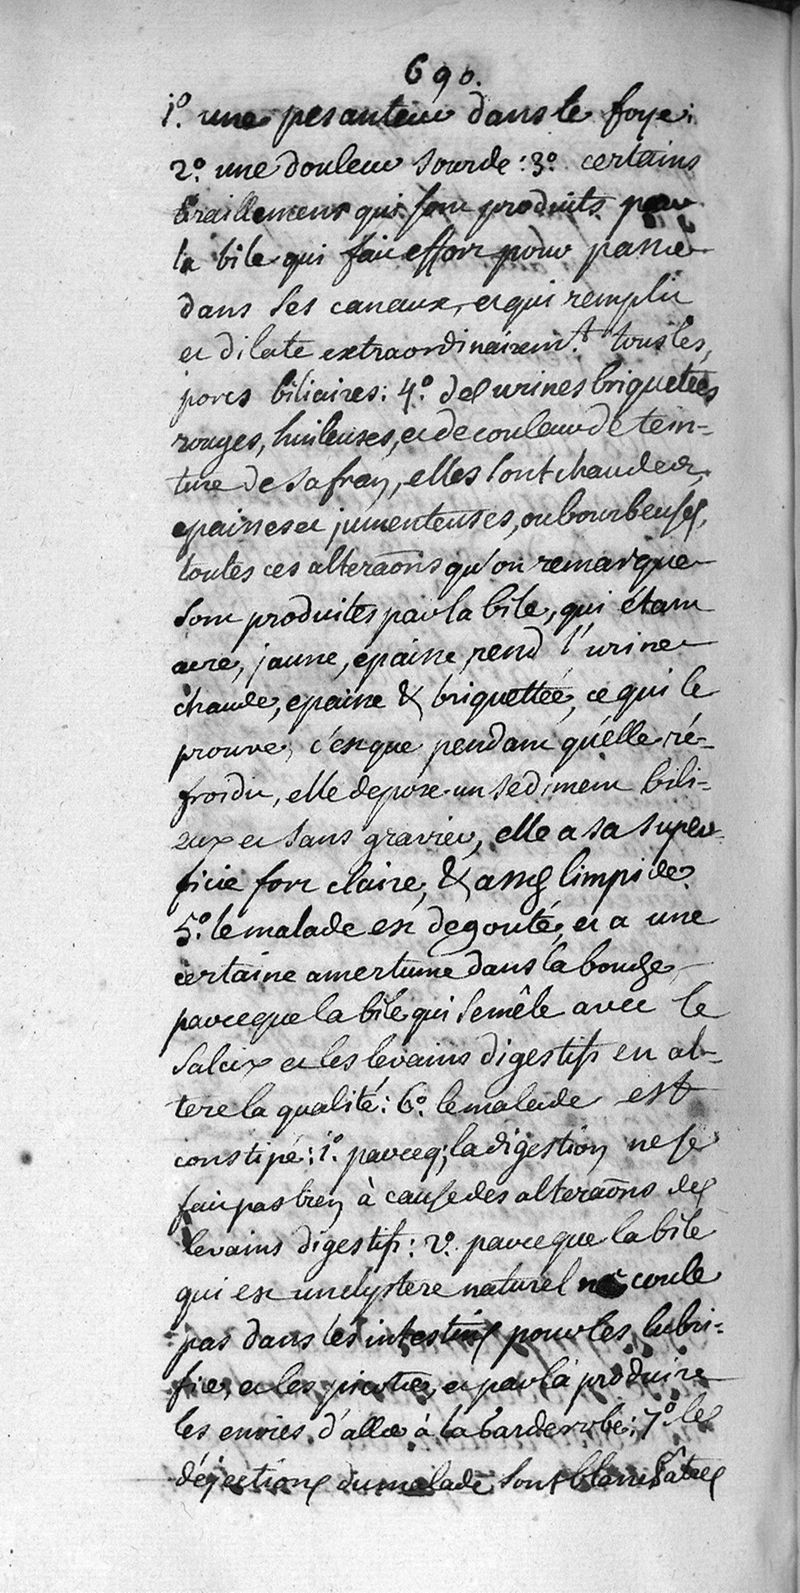 690.
1º. une pesanteur dans le foye:
2º. une douleur sourde: 3º. certains
tiraillemens qui sont produits par
la bile qui fait effort pour passer
dans ses canaux, et qui remplit
et dilate extraordinairemt. tous les
pores biliaires: 4º. des urines briquetées
rouges, huileuses, et de couleur de tein-
ture de safran, elles sont chaudes,
epaisses et jumenteuses, ou bourbeuses,
toutes ces alteraōns qu'on remarque
sont produites par la bile, qui étant
acre, jaune, epaisse, rend l'urine
chaude, epaisse & briquettée, ce qui le
prouve, c'est que pendant qu'elle ré-
froidit, elle depose un sediment bili-
eux et sans gravier, elle a sa super-
ficie fort claire, & assez limpide.
5º. le malade est degouté, et a une
certaine amertume dans la bouche
parce que la bile qui se mêle avec la
salive et les levains digestifs en al-
tere la qualité: 6º. le malade est
constipé: 1º. parceq; la digestion ne se
fait pas bien à cause des alteraōns des
levains digestifs: 2º. parce que la bile
qui est un clystere naturel ne coule
pas dans les intestins pour les lubri-
fier, et les picoter, et par là produire
les envies d'aller à la garderobe: 7º. les
déjections du malade sont blanchâtres